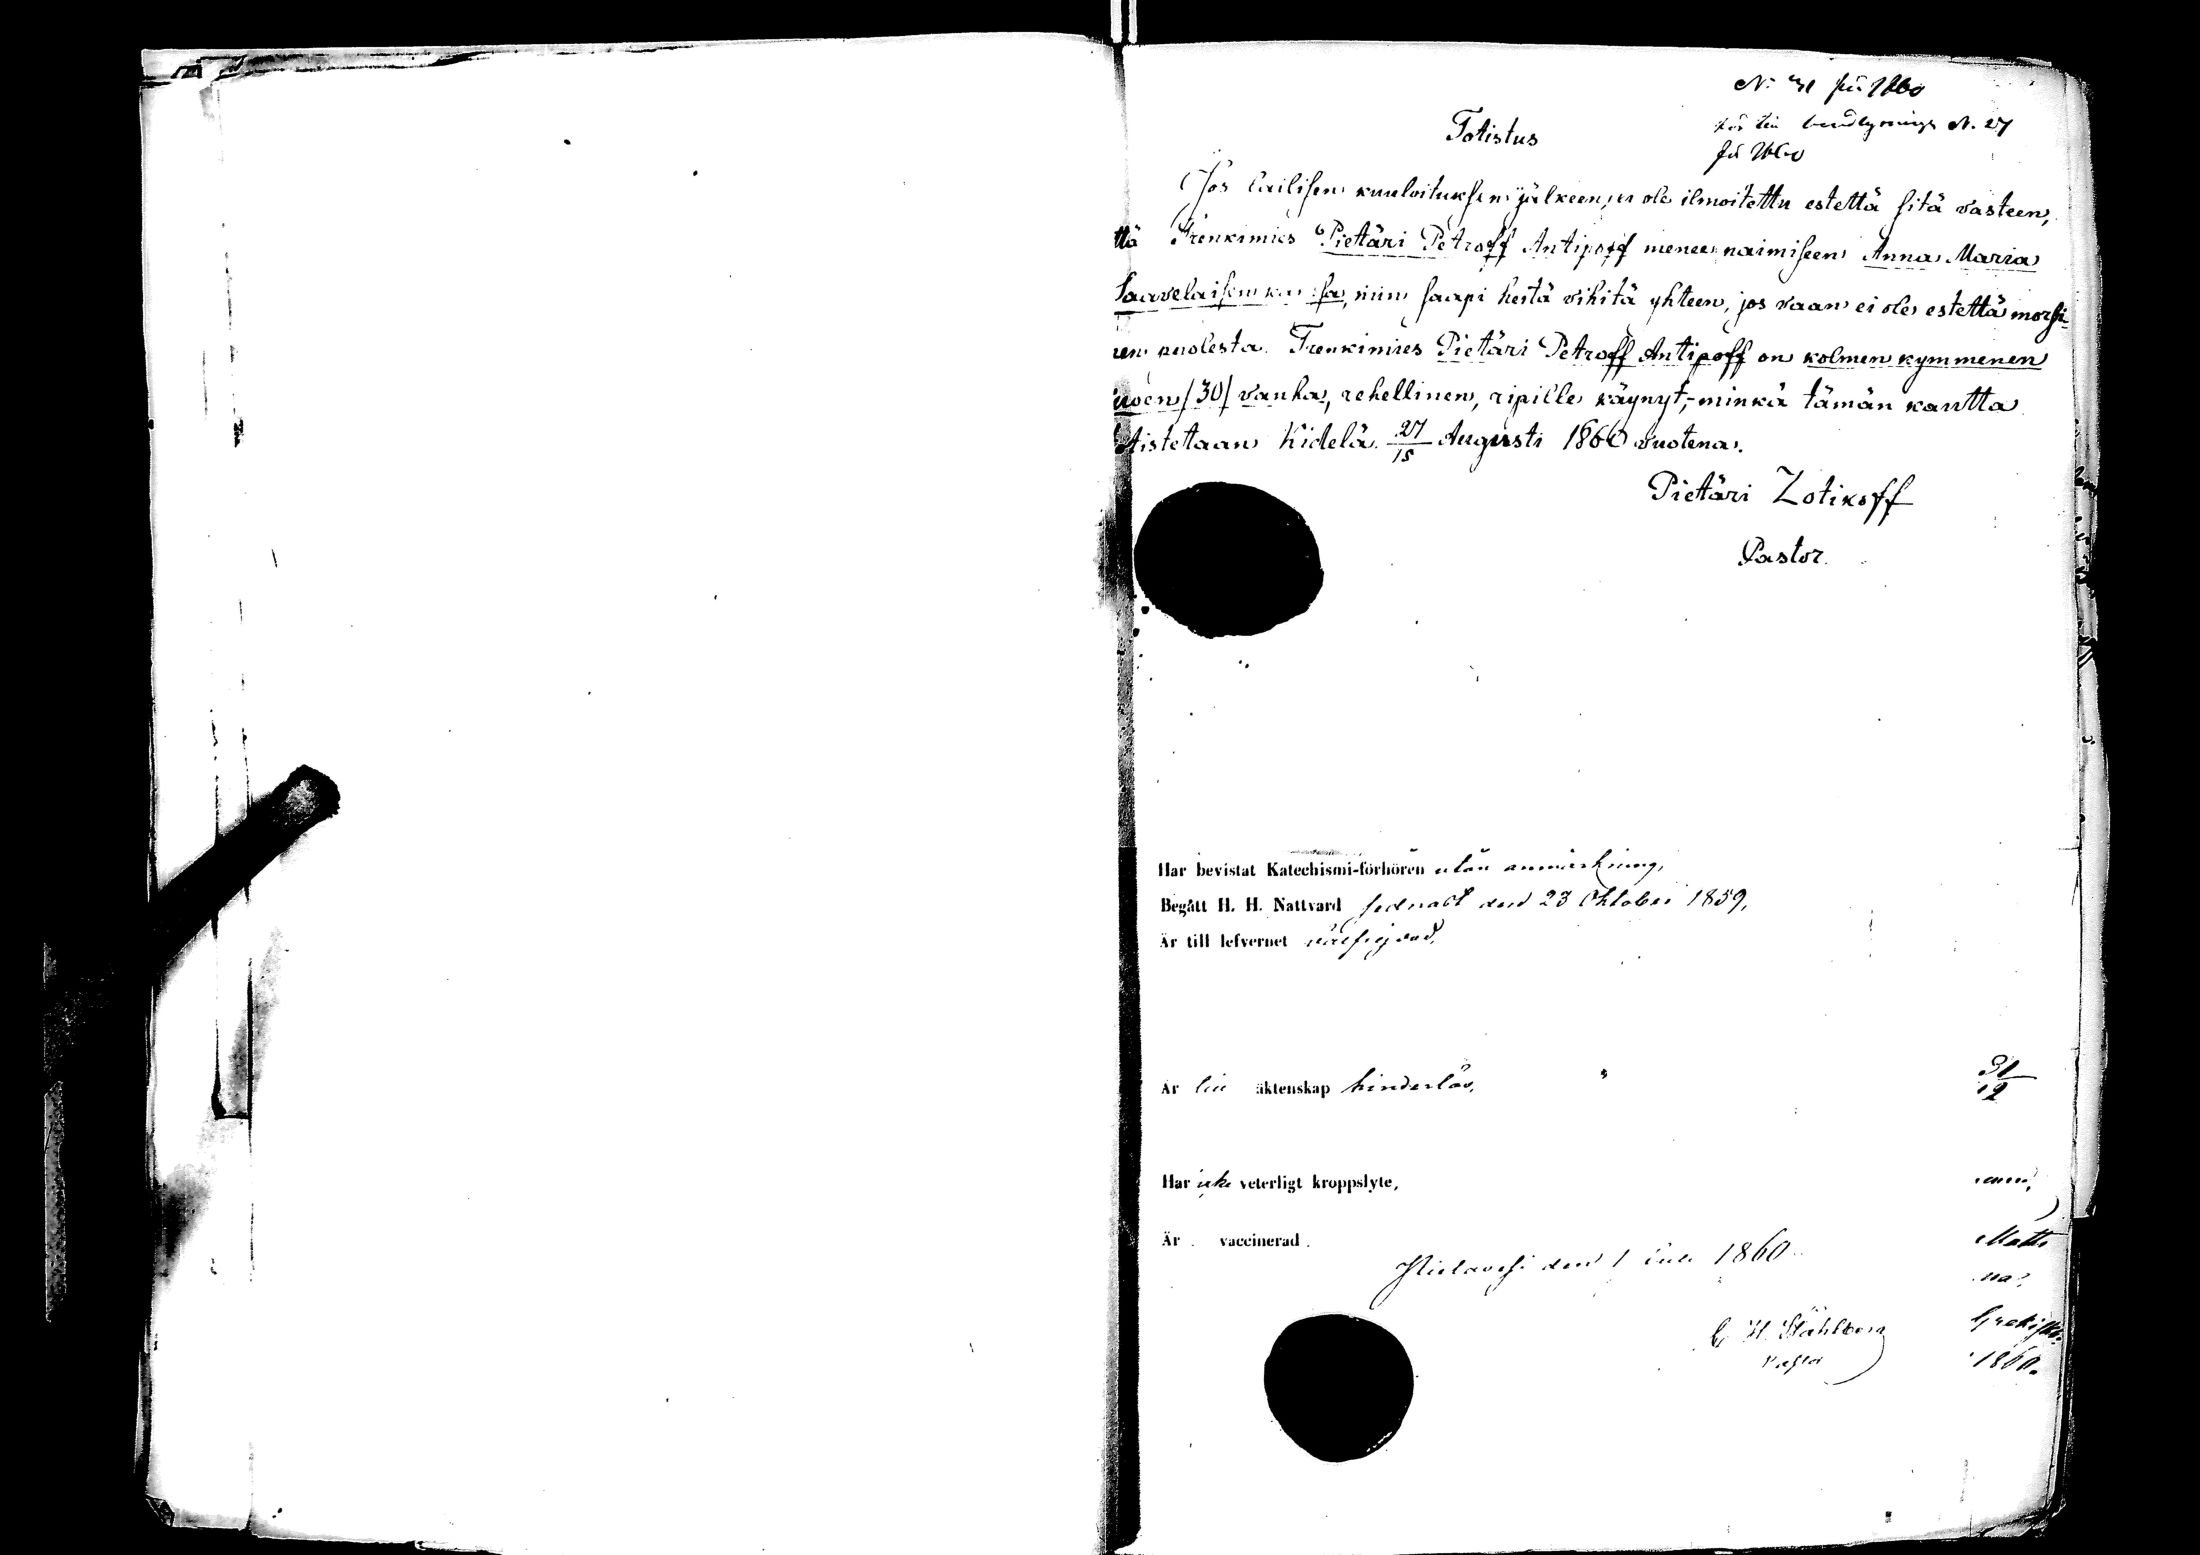 N: 31 för 1860
hör till N. 27
för 1860
Totistus
Jos lailisen kuuloituksen jälkeen, ei ole ilmoitettu estettä sitä vasteen,
ttä Trenkimies Pietäri Petroff Antipoff menee naimiseen Anna Maria
Saavelaisen kanssa, niin saapi heitä vihitä yhteen, jos vaan ei ole estettä morsi-
men puolesta. Trenkimies Pietäri Petroff Antipoff on kolmen kymmenen
uoen /30/ vanha, rehellinen, ripille käynyt, minkä tämän kautta
tistetaan Kidelä 27/15 Augusti 1860 vuotena.
Pietäri Zotikoff
Pastor.
Har bevistat Katechismi-förhören utan anmärkning,
Begått H. H. Nattvard sednast den 23 Oktober 1859,
Är till lefvernet välfrejdad,
Är till äktenskap hinderlös,
31/12
Har icke veterligt kroppslyte,
Är vaccinerad.
Matts
Pielavesi den 1 Juli 1860
na
Grekiska
C. H. Ståhlberg
Pastor
1860.